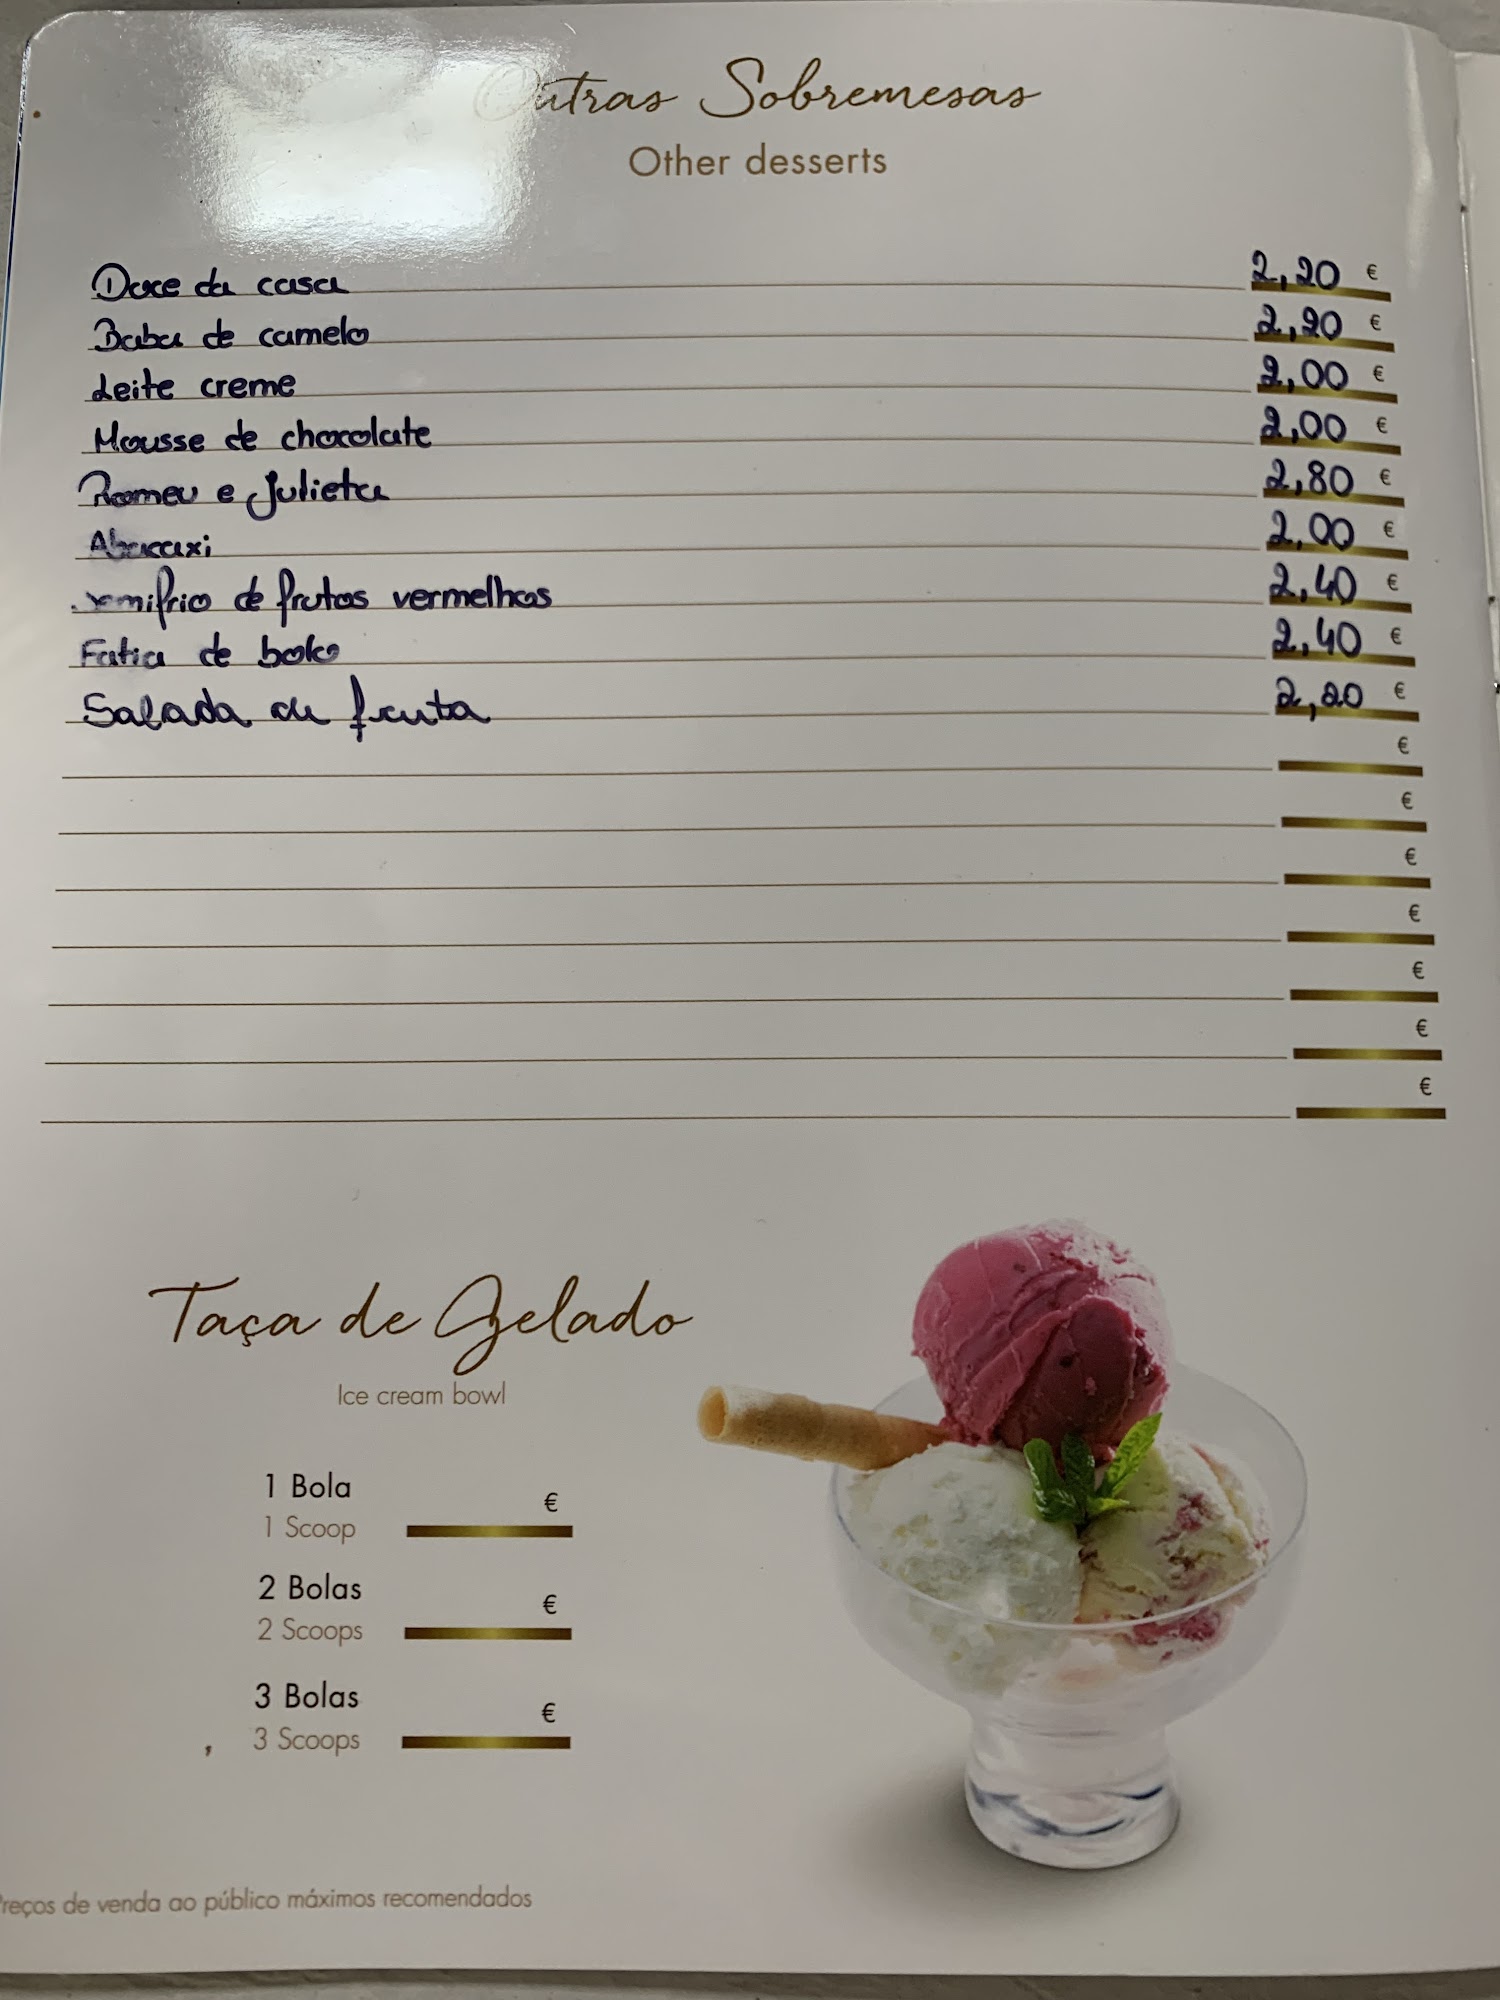 Outras Sobremesas
Other desserts
Doce da casa 2,20 €
Baba de camelo 2,20 €
Leite creme 2,00 €
Mousse de chocolate 2,00 €
Romeu e Julieta 2,80 €
Abacaxi 2,00 €
Semifrio de frutos vermelhos 2,40 €
Fatia de bolo 2,40 €
Salada de fruta 2,20 €
€
€
€
€
€
€
€
Taça de Gelado
Ice cream bowl
1 Bola €
1 Scoop
2 Bolas €
2 Scoops
3 Bolas €
3 Scoops
Preços de venda ao público máximos recomendados